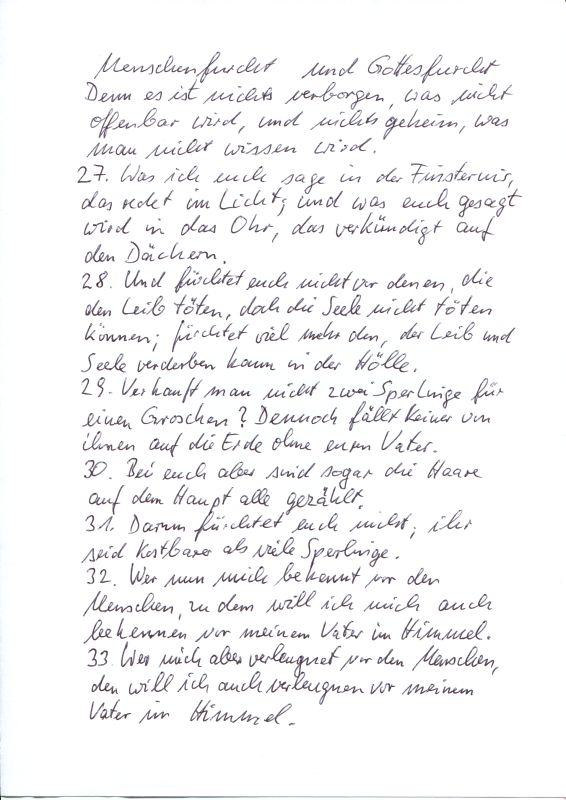 Menschenfurcht und Gottesfurcht
Denn es ist nichts verborgen, was nicht
offenbar wird, und nichts geheim, was
man nicht wissen wird.
27. Was ich euch sage in der Finsternis,
das redet im Licht; und was euch gesagt
wird in das Ohr, das verkündigt auf
den Dächern.
28. Und fürchtet euch nicht vor denen, die
den Leib töten, doch die Seele nicht töten
können; fürchtet viel mehr den, der Leib und
Seele verderben kann in der Hölle.
29. Verkauft man nicht zwei Sperlinge für
einen Groschen? Dennoch fällt keiner von
ihnen auf die Erde ohne euren Vater.
30. Bei euch aber sind sogar die Haare
auf dem Haupt alle gezählt.
31. Darum fürchtet euch nicht; ihr
seid kostbarer als viele Sperlinge.
32. Wer nun mich bekennt vor den
Menschen, zu dem will ich mich auch
bekennen vor meinem Vater im Himmel.
33. Wer mich aber verleugnet vor den Menschen,
den will ich auch verleugnen vor meinem
Vater im Himmel.